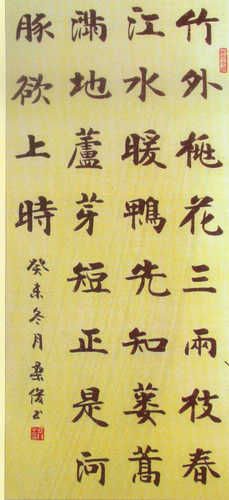 竹外桃花三兩枝春
江水暖鴨先知蔞蒿
滿地蘆芽短正是河
豚欲上時
癸未冬月桑俊书